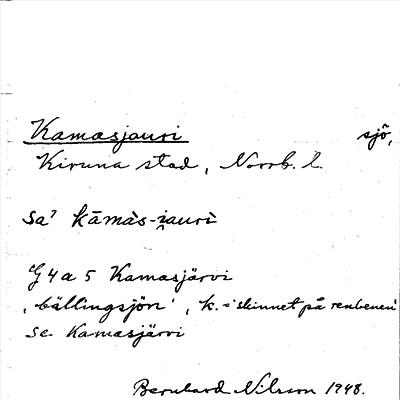 Kamasjauri sjö,
Kiruna stad, Norrb. l.
sa' kāmàs-i̯aurì
G4a5 Kamasjärvi
'bällingsjön', k. = 'skinnet på renbenen'
se Kamasjärvi
Bernhard Nilsson 1948.